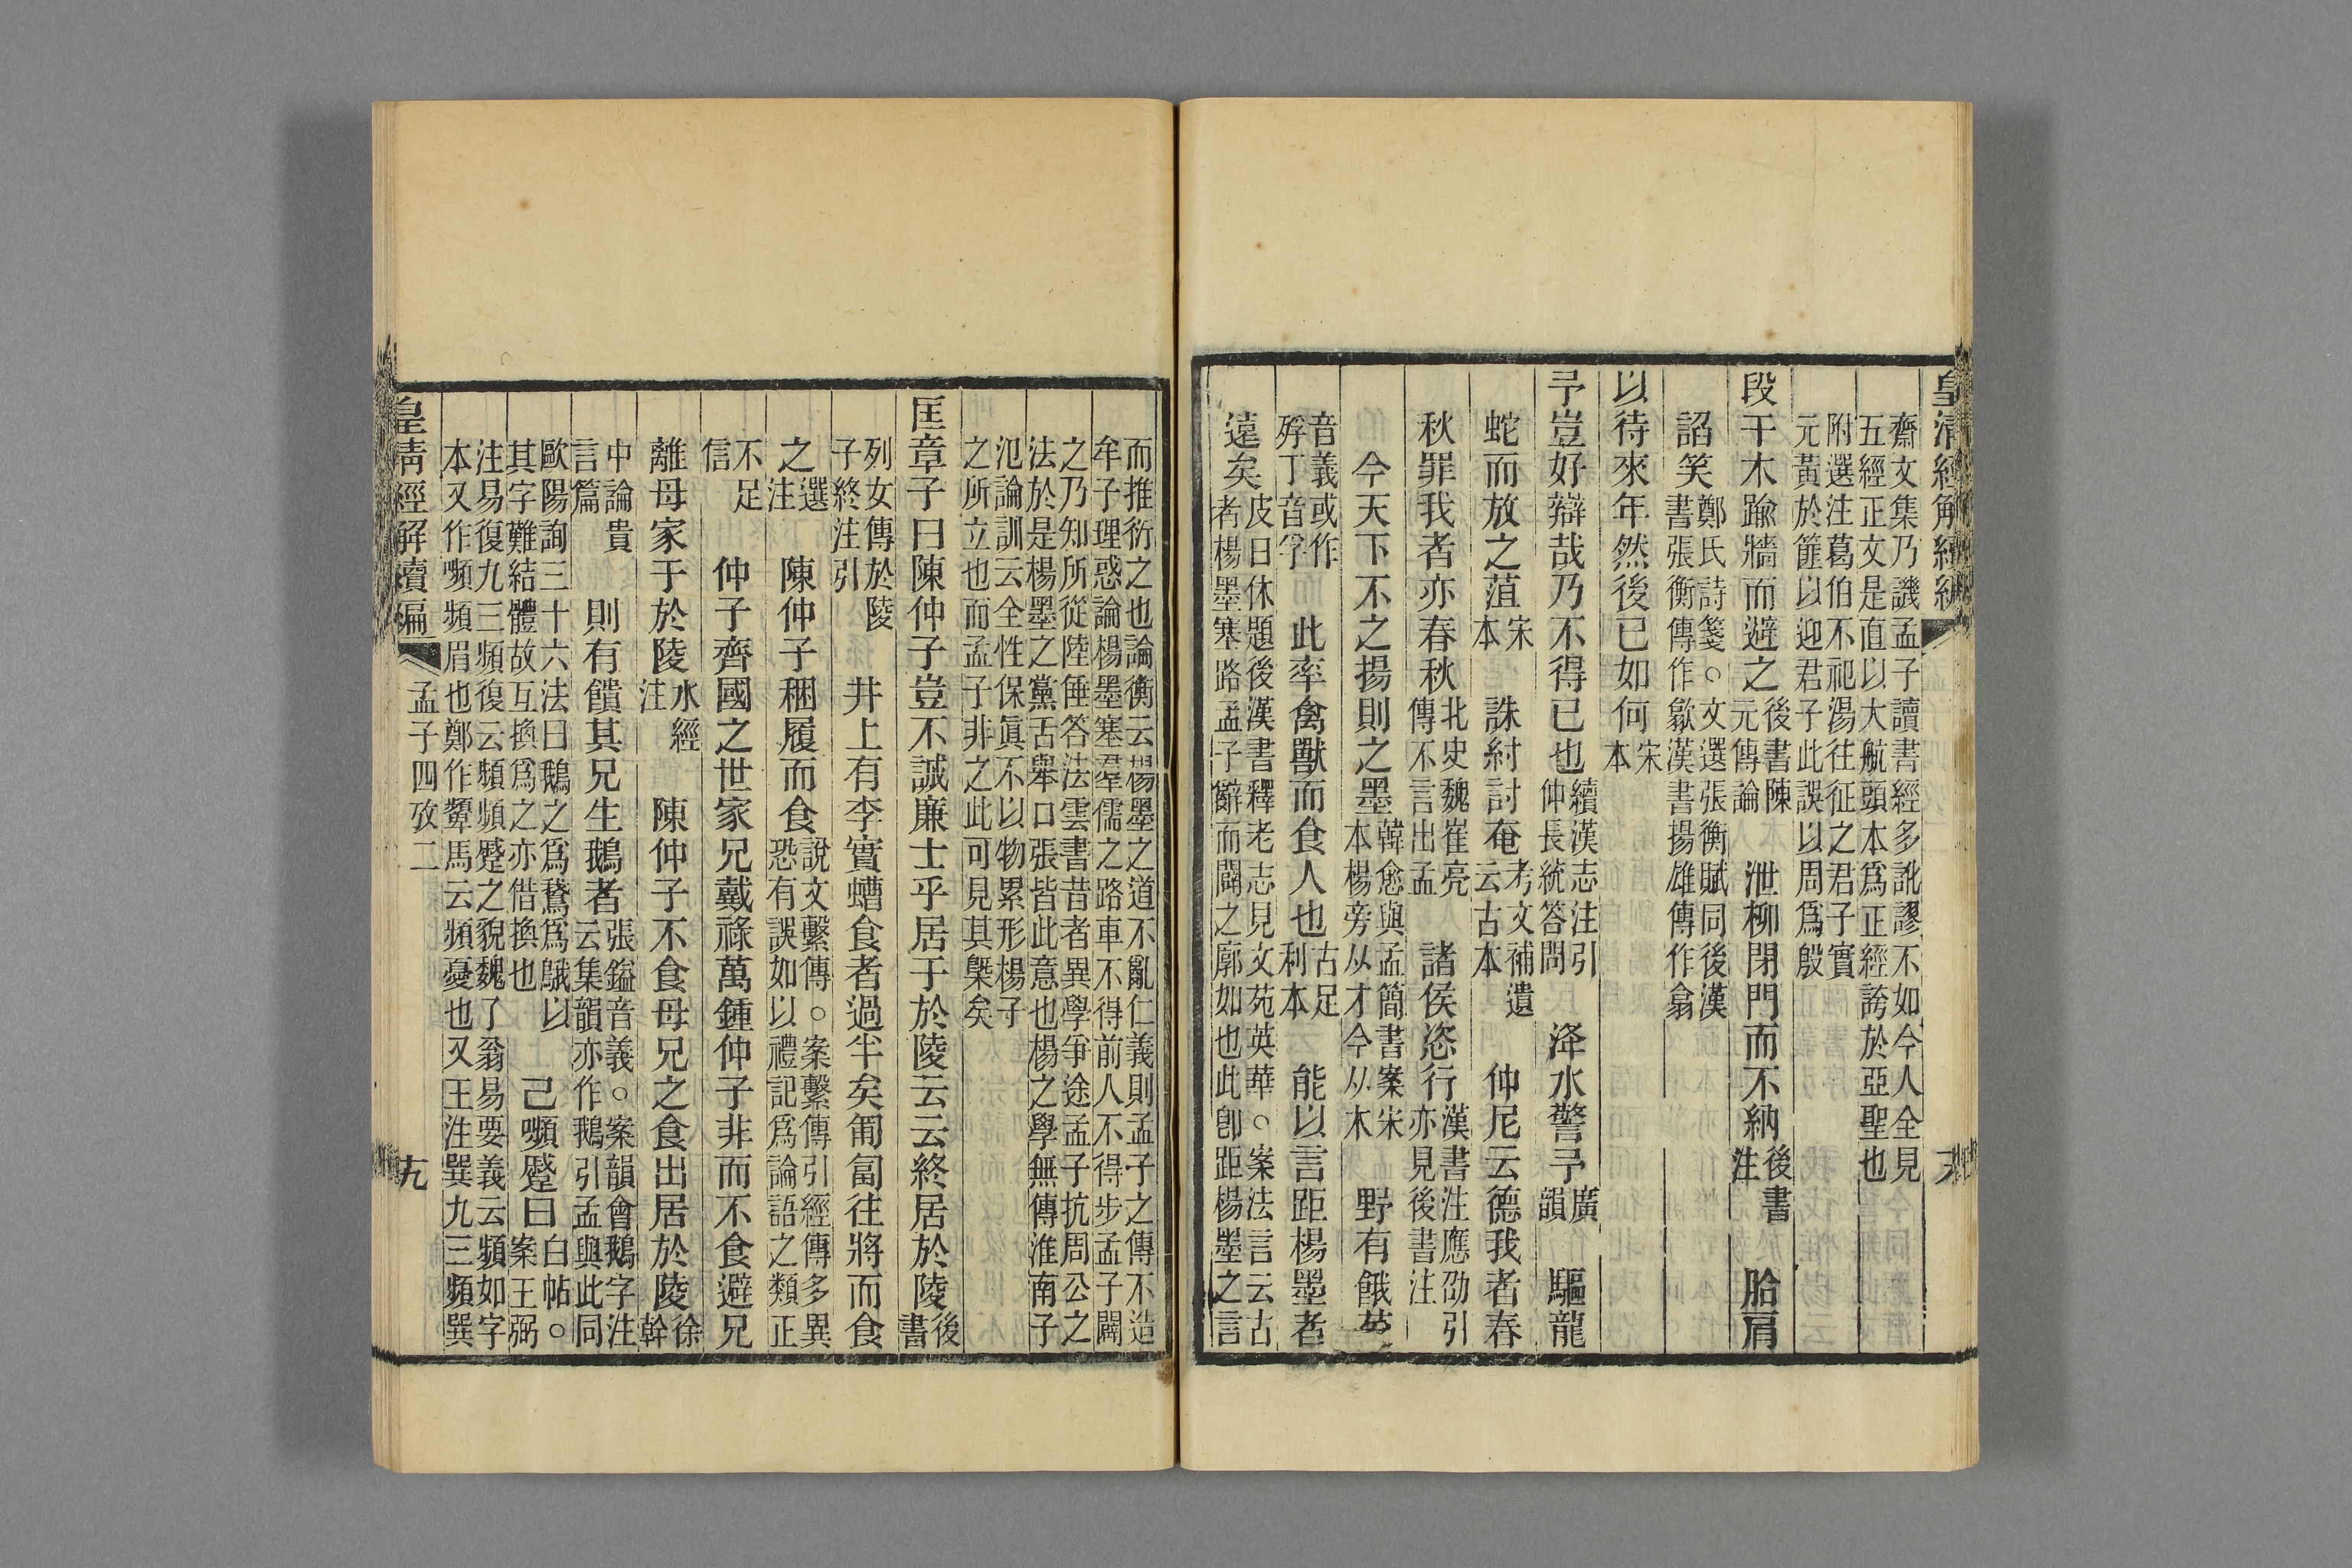 皇清經解續編
齋文集乃譏孟子讀書經多訛謬不如今人全見
五經正文是直以大航頭本爲正經誇於亞聖也
附選注葛伯不祀湯往征之君子實
元黃於篚以迎君子此誤以周爲殷
段干木踰牆而避之後書陳元傳論 泄柳閉門而不納後書注 胎肩
諂笑鄭氏詩箋○文選張衡賦同後漢書張衡傳作歙漢書揚雄傳作翕
以待來年然後已如何宋本
予豈好辯哉乃不得已也續漢志注引仲長統答問 洚水警予廣韻 驅龍
蛇而放之菹宋本 誅紂討奄考文補遺云古本 仲尼云德我者春
秋罪我者亦春秋北史魏崔亮傳不言出孟 諸侯恣行漢書注應劭引亦見後書注
今天下不之揚則之墨韓愈與孟簡書案宋本楊旁从才今从木 野有餓莩
音義或作殍丁音孚 此率禽獸而食人也古足利本 能以言距楊墨者
遠矣皮日休題後漢書釋老志見文苑英華○案法言云古者楊墨塞路孟子辭而闢之廓如也此卽距楊墨之言
而推衍之也論衡云楊墨之道不亂仁義則孟子之傳不造
牟子理惑論楊墨塞羣儒之路車不得前人不得步孟子闢
之乃知所從陸倕答法雲書昔者異學爭途孟子抗周公之
法於是楊墨之黨舌舉口張皆此意也楊之學無傳淮南子
氾論訓云全性保眞不以物累形楊子
之所立也而孟子非之此可見其槩矣
匡章子曰陳仲子豈不誠廉士乎居于於陵云云終居於陵後書
列女傳於陵子終注引 井上有李實螬食者過半矣匍匐往將而食
之選注 陳仲子稛履而食說文繫傳○案繫傳引經傳多異恐有誤如以禮記爲論語之類正
不足信 仲子齊國之世家兄戴祿萬鍾仲子非而不食避兄
離母家于於陵水經注 陳仲子不食母兄之食出居於陵徐幹
中論貴言篇 則有饋其兄生鵝者張鎰音義○案韻會鵝字注云集韻亦作鵝引孟與此同
歐陽詢三十六法曰鵝之爲鵞爲䳘以其字難結體故互換爲之亦借換也 己嚬蹙曰白帖○案王弼
注易復九三頻復云頻頻蹙之貌魏了翁易要義云頻如字
本又作嚬頻眉也鄭作顰馬云頻憂也又王注巽九三頻巽
皇清經解續編 孟子四攷二 十九